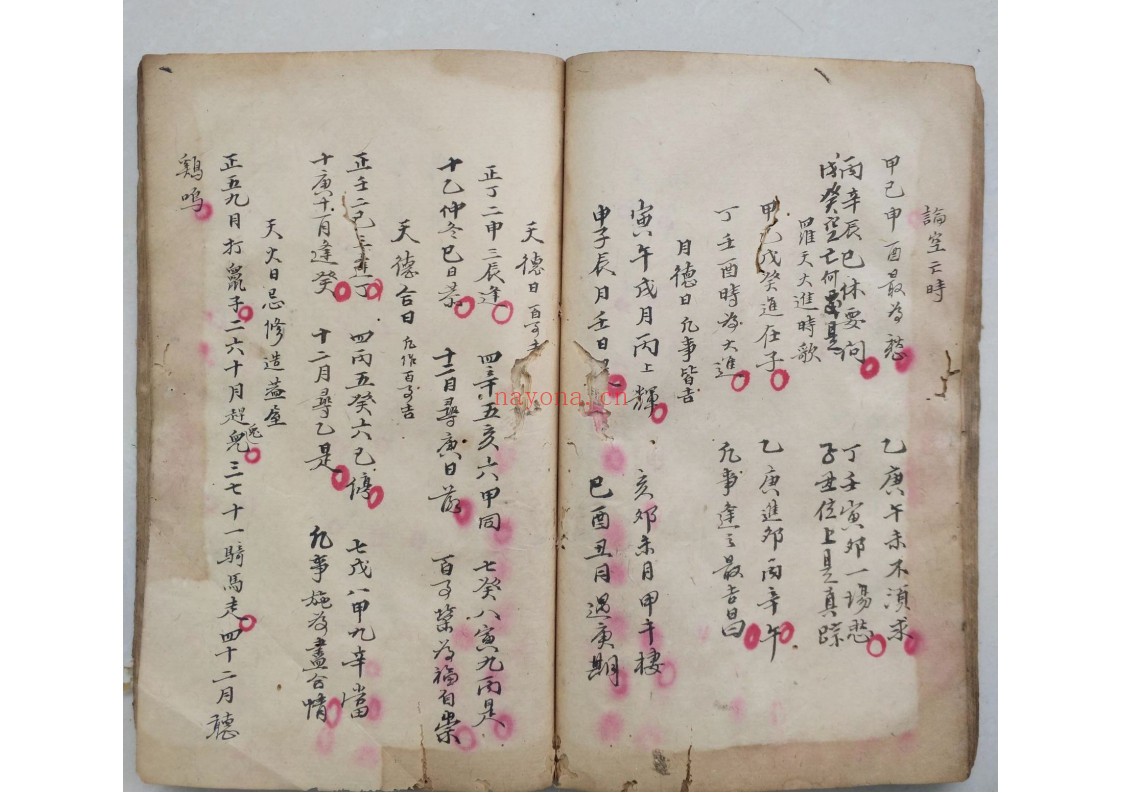 論空亡時
甲己申酉最為愁 乙庚午未不須求
丙辛辰巳休要问 丁壬寅夘一場愁
戊癸空亡何處是 子丑位上是真踪
羅天大進時歌
甲己戊癸進在子 乙庚進夘丙辛午
丁壬酉時為大進 凢事逢之最吉昌
月德日 凢事皆吉
寅午戌月丙上輝 亥夘未月甲丰棲
申子辰月壬日 巳酉丑月遇庚期
天德日 百事吉
正丁二申三辰逢 四辛五亥六甲同 七癸八寅九丙是
十乙仲冬巳日 十二月尋庚日 百事榮為福自崇
天德合日 凢作百事吉
正壬二巳三逢丁 四丙五癸六己停 七戊八甲九辛當
十庚十一月逢癸 十二月尋乙是 凢事施為盡合情
天火日忌修造蓋屋
正五九月打鼠子 二六十月趕兔 三七十一騎馬走 四十二月聽
鷄鳴
nayona.cn